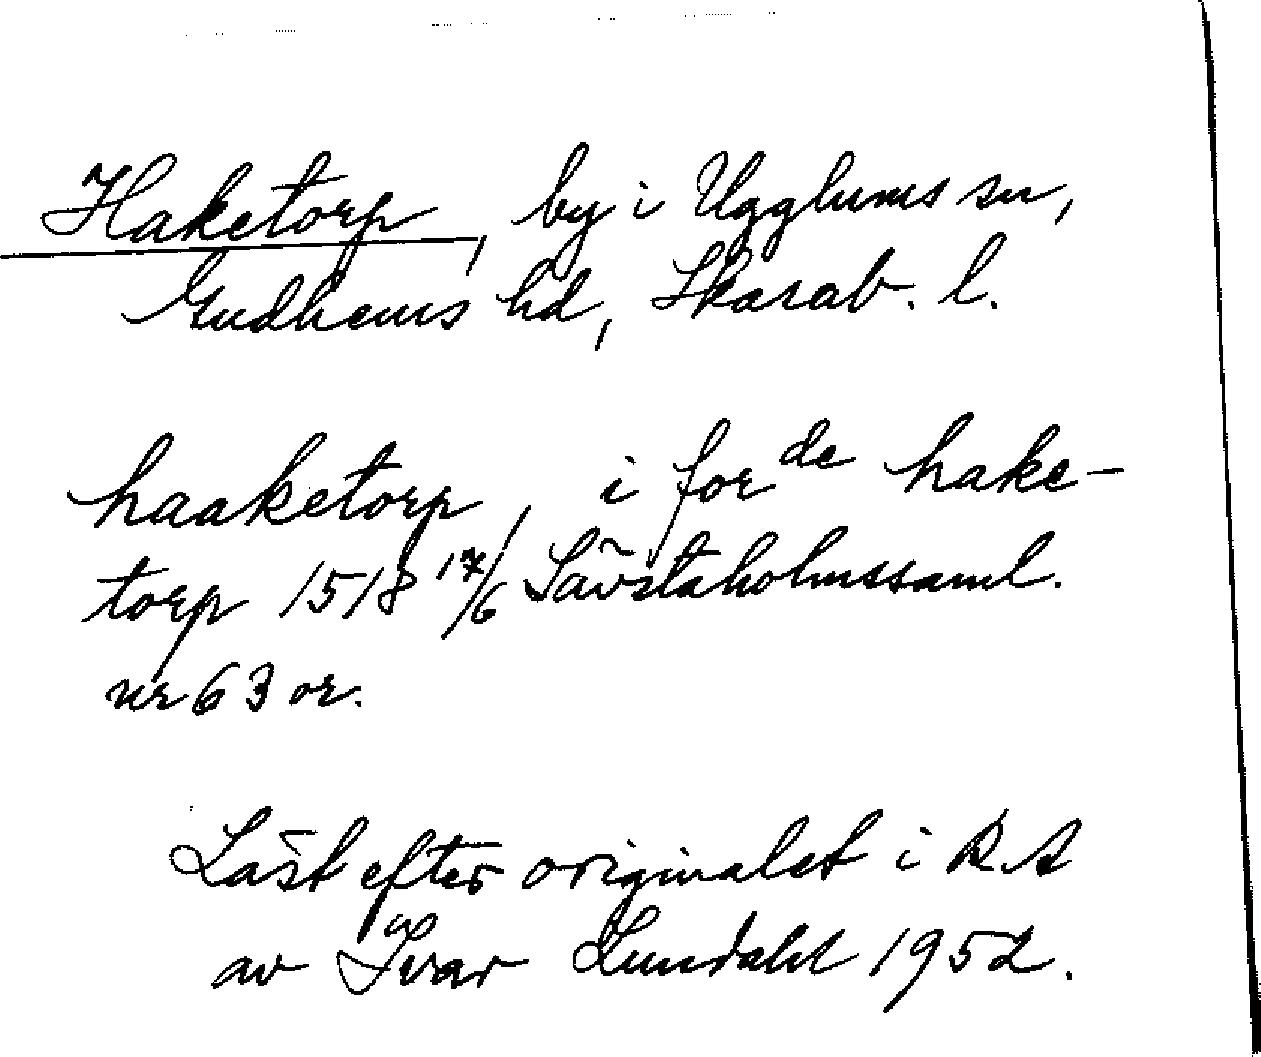 Haketorp, by i Ugglums sn,
Gudhems hd, Skarab. l.
haaketorp, i forde hake-
torp 1518 17/6 Sävstaholmssaml.
nr 63 or.
Läst efter originalet i RA
av Ivar Lundahl 1952.